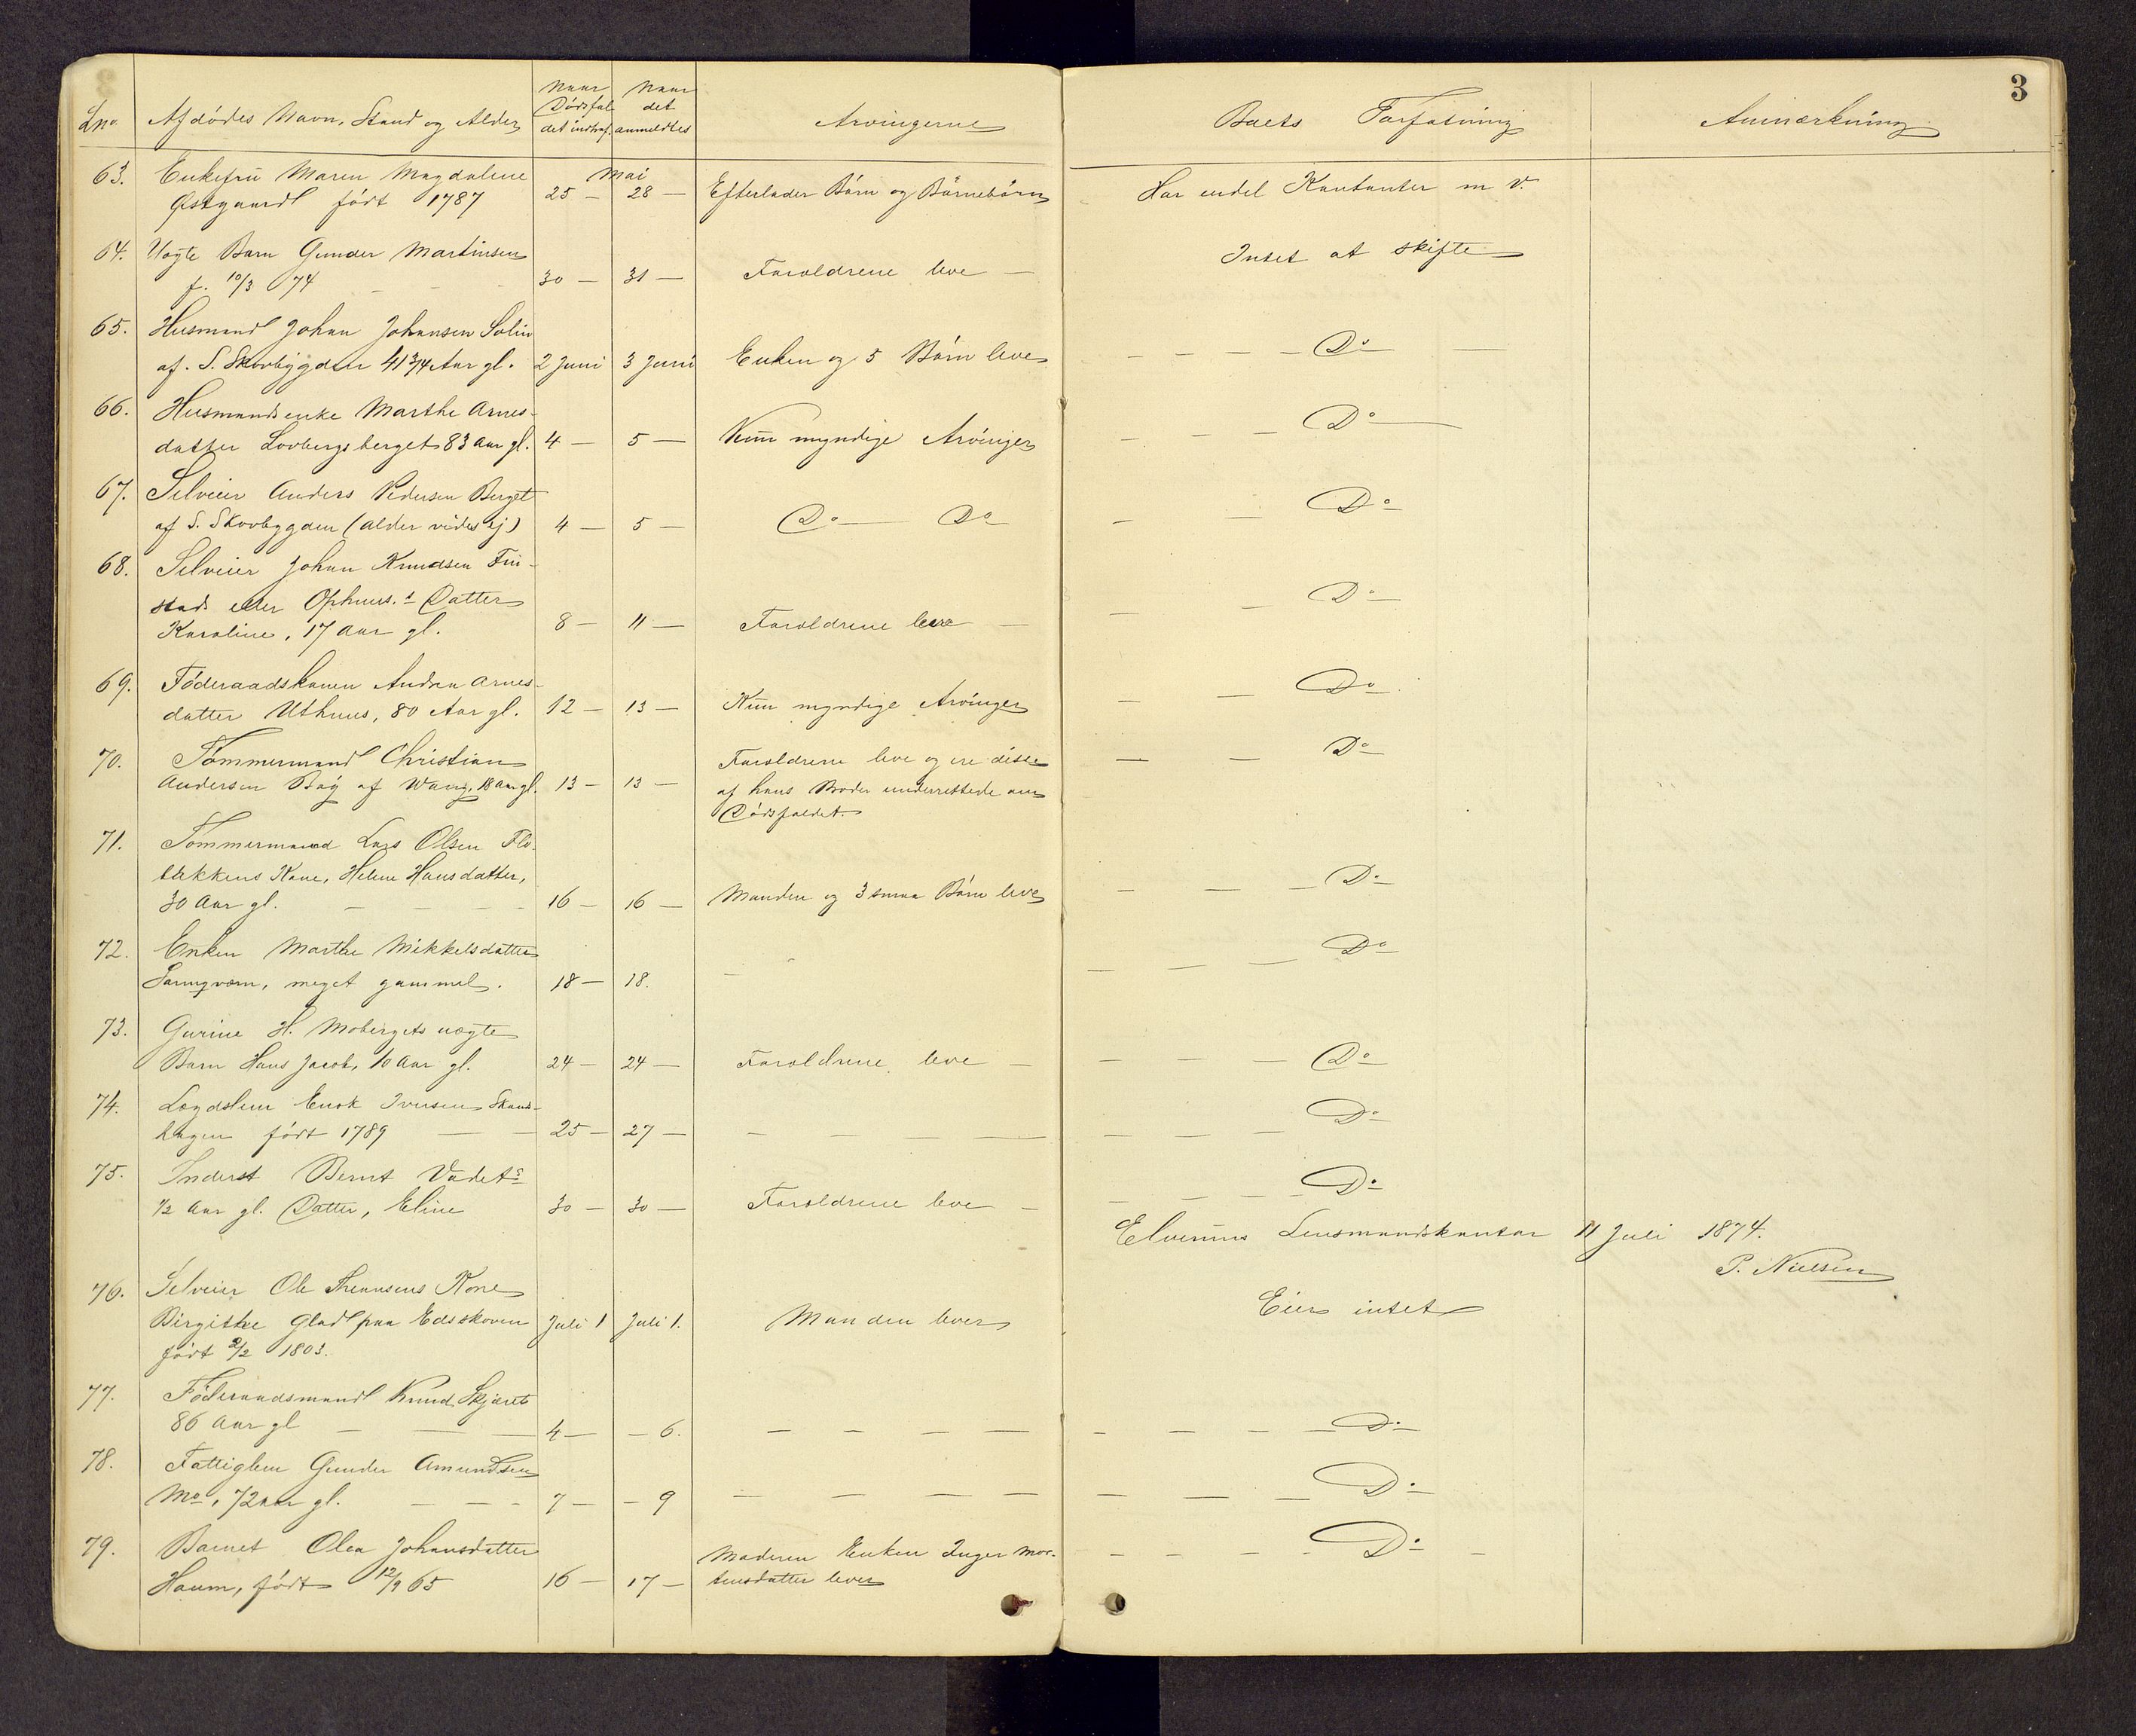 3
Lno. Afdødes Navn, Stand og Alder Naar Dødsfaldet indtraf. Naar det anmeldtes Arvingerne Boets Forfatning Anmærkning
Mai
63. Enkefru Maren Magdalene
Østgaard født 1787 25 — 28 — Efterlader Børn og Børnebørn Har endel Kontanter m V.
64. Uægte Barn Gunder Martinsen
f. 10/3 74 — — 30 — 31 — Forældrene leve — Intet at skifte
65. Husmand Johan Johansen
af S. Skovbygden 41 3/4 Aar gl. 2 Juni 3 Juni Enken og 5 Børn leve — — — — Do —
66. Husmandsenke Marthe Arnes-
datter Lovbergsberget 83 Aar gl. 4 — 5 — Kun myndige Arvinger — — — Do —
67. Selveier Anders Pedersen Berget
af S. Skovbygden (alder vides ej) 4 — 5 — Do — Do — — Do
68. Selveier Johan Knudsen Fin-
stad eller Ophuus.s Datter
Karoline, 17 Aar gl. 8 — 11 — Forældrene leve — — — Do
69. Føderaadskonen Andrea Arnes-
datter Uthuus, 80 Aar gl. 12 — 13 — Kun myndige Arvinger — — Do
70. Tømmermand Christian
Andersen Bag af Wang, 18 Aar gl. 13 — 13 — Forældrene leve og ere disse
af hans Broder underrettede om
Dødsfaldet. — — Do
71. Tømmermand Lars Olsen Flo-
bækkens Kone, Helene Hansdatter,
30 Aar gl. — — — 16 — 16 — Manden og 3 smaa Børn leve — — — Do
72. Enken Marthe Mikkelsdatter
meget gammel. 18 — 18. — — — — Do
73. Gurine H. Mobergets uægte
Barn Hans Jacob, 10 Aar gl. 24 — 24 — Forældrene leve — — — — Do
74. Lægdslem Enok Iversen Skand-
hagen født 1789 — — 25 — 27 — — — — — — — — Do
75. Inderst Bernt Vadets
1/2 Aar gl. Datter, Eline 30 — 30 — Forældrene leve — — — — Do
Elverums Lensmandskontor 11 Juli 1874.
P. Nielsen
76. Selveier Ole Kone
Birgithe Glad paa Edsskoven Juli 1 Juli 1. Manden lever Eier intet
født 2/2 1803.
77. Føderaadsmand Knud Skjæret
86 Aar gl — — — 4 — — 6. — — — — — — — — Do
78. Fattiglem Gunder Amundsen
Mo, 72 Aar gl. — — — 7 — — 9 — — — — — — — Do
79. Barnet Olea Johansdatter
Haum, født 12/9 65 16 — 17 — Moderen Enken Inger Mor-
tensdatter lever — — — — Do —